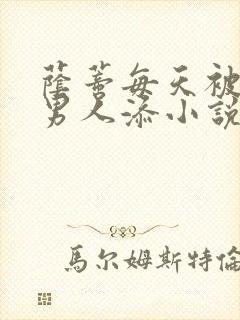 蔭蒂每天被
男人添小說
馬尔姆斯特倫